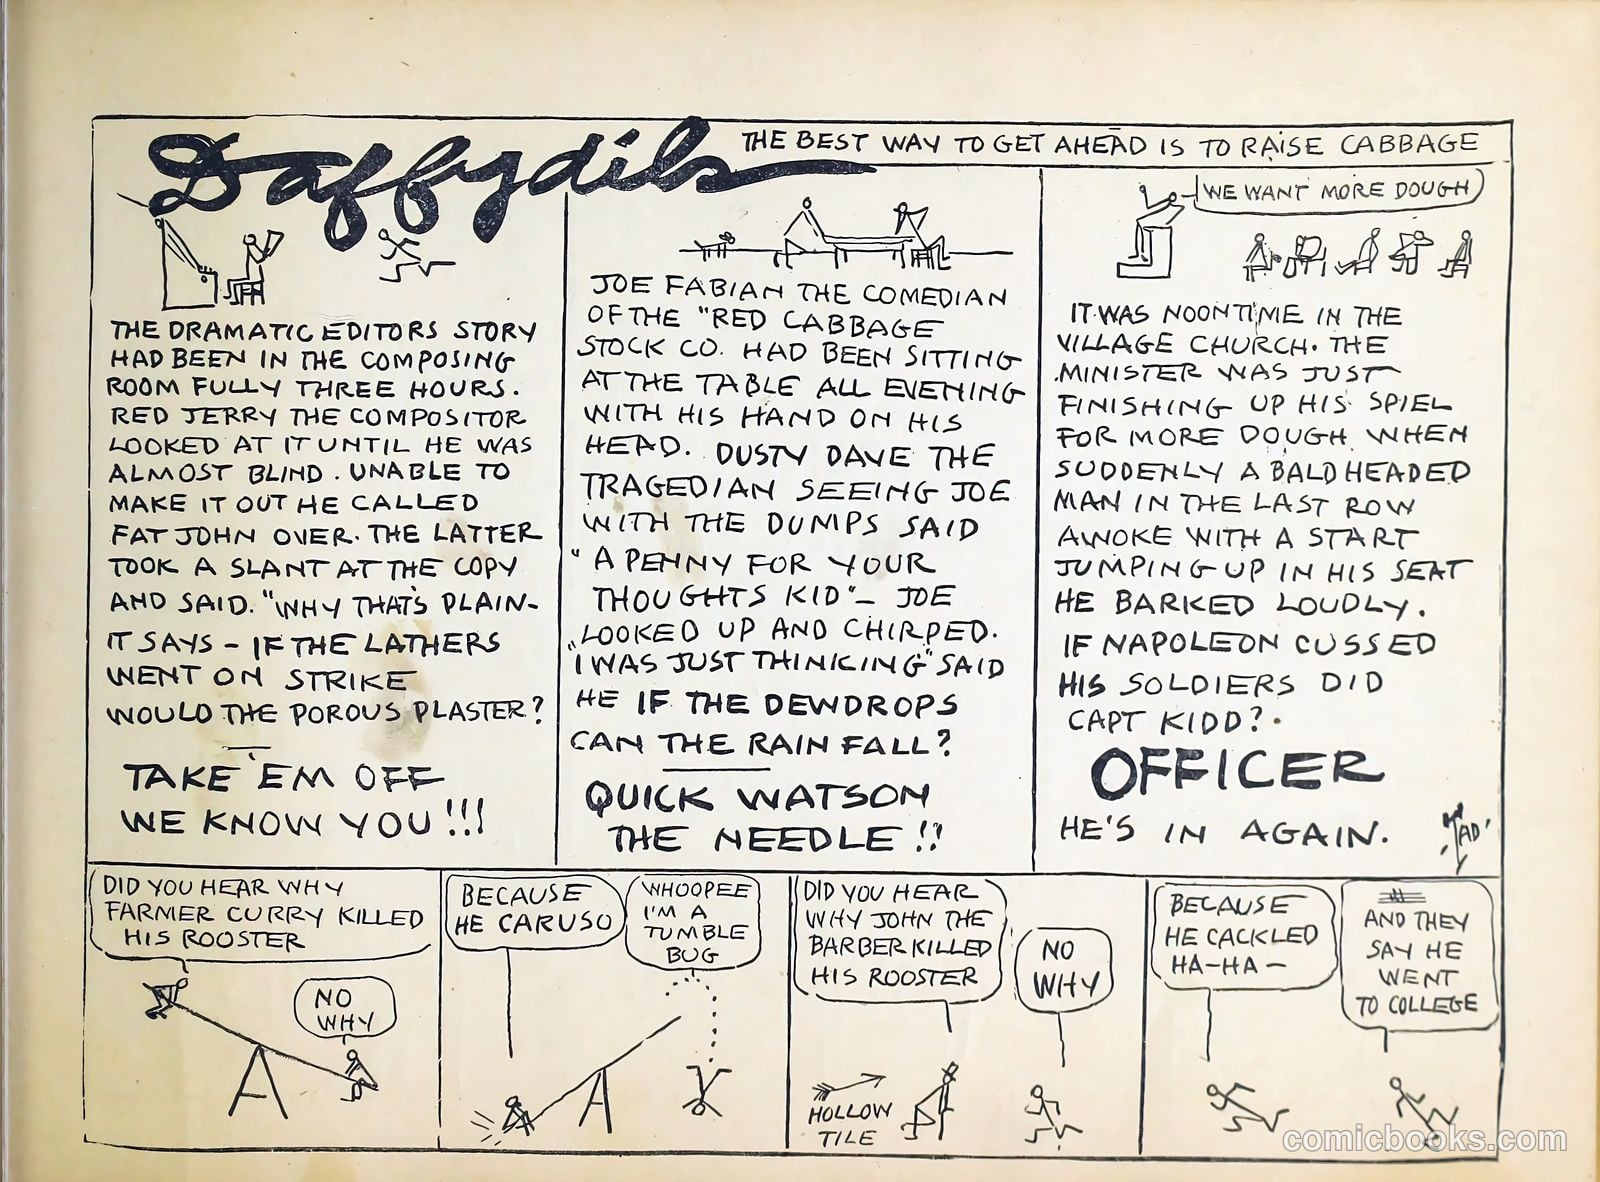 Daffydils
THE BEST WAY TO GET AHEAD IS TO RAISE CABBAGE
THE DRAMATIC EDITORS STORY
HAD BEEN IN THE COMPOSING
ROOM FULLY THREE HOURS.
RED JERRY THE COMPOSITOR
LOOKED AT IT UNTIL HE WAS
ALMOST BLIND. UNABLE TO
MAKE IT OUT HE CALLED
FAT JOHN OVER. THE LATTER
TOOK A SLANT AT THE COPY
AND SAID. "WHY THAT'S PLAIN-
IT SAYS - IF THE LATHERS
WENT ON STRIKE
WOULD THE POROUS PLASTER?
TAKE 'EM OFF
WE KNOW YOU!!!
JOE FABIAN THE COMEDIAN
OF THE "RED CABBAGE
STOCK CO. HAD BEEN SITTING
AT THE TABLE ALL EVENING
WITH HIS HAND ON HIS
HEAD. DUSTY DAVE THE
TRAGEDIAN SEEING JOE
WITH THE DUMPS SAID
"A PENNY FOR YOUR
THOUGHTS KID"- JOE
LOOKED UP AND CHIRPED.
"I WAS JUST THINKING" SAID
HE IF THE DEWDROPS
CAN THE RAIN FALL?
QUICK WATSON
THE NEEDLE!?
WE WANT MORE DOUGH
IT WAS NOONTIME IN THE
VILLAGE CHURCH. THE
MINISTER WAS JUST
FINISHING UP HIS SPIEL
FOR MORE DOUGH WHEN
SUDDENLY A BALD HEADED
MAN IN THE LAST ROW
AWOKE WITH A START
JUMPING UP IN HIS SEAT
HE BARKED LOUDLY.
IF NAPOLEON CUSSED
HIS SOLDIERS DID
CAPT KIDD?.
OFFICER
HE'S IN AGAIN.
'TAD'
DID YOU HEAR WHY
FARMER CURRY KILLED
HIS ROOSTER
NO
WHY
BECAUSE
HE CARUSO
WHOOPEE
I'M A
TUMBLE
BUG
DID YOU HEAR
WHY JOHN THE
BARBER KILLED
HIS ROOSTER
NO
WHY
HOLLOW
TILE
BECAUSE
HE CACKLED
HA-HA-
AND THEY
SAY HE
WENT
TO COLLEGE
comicbooks.com